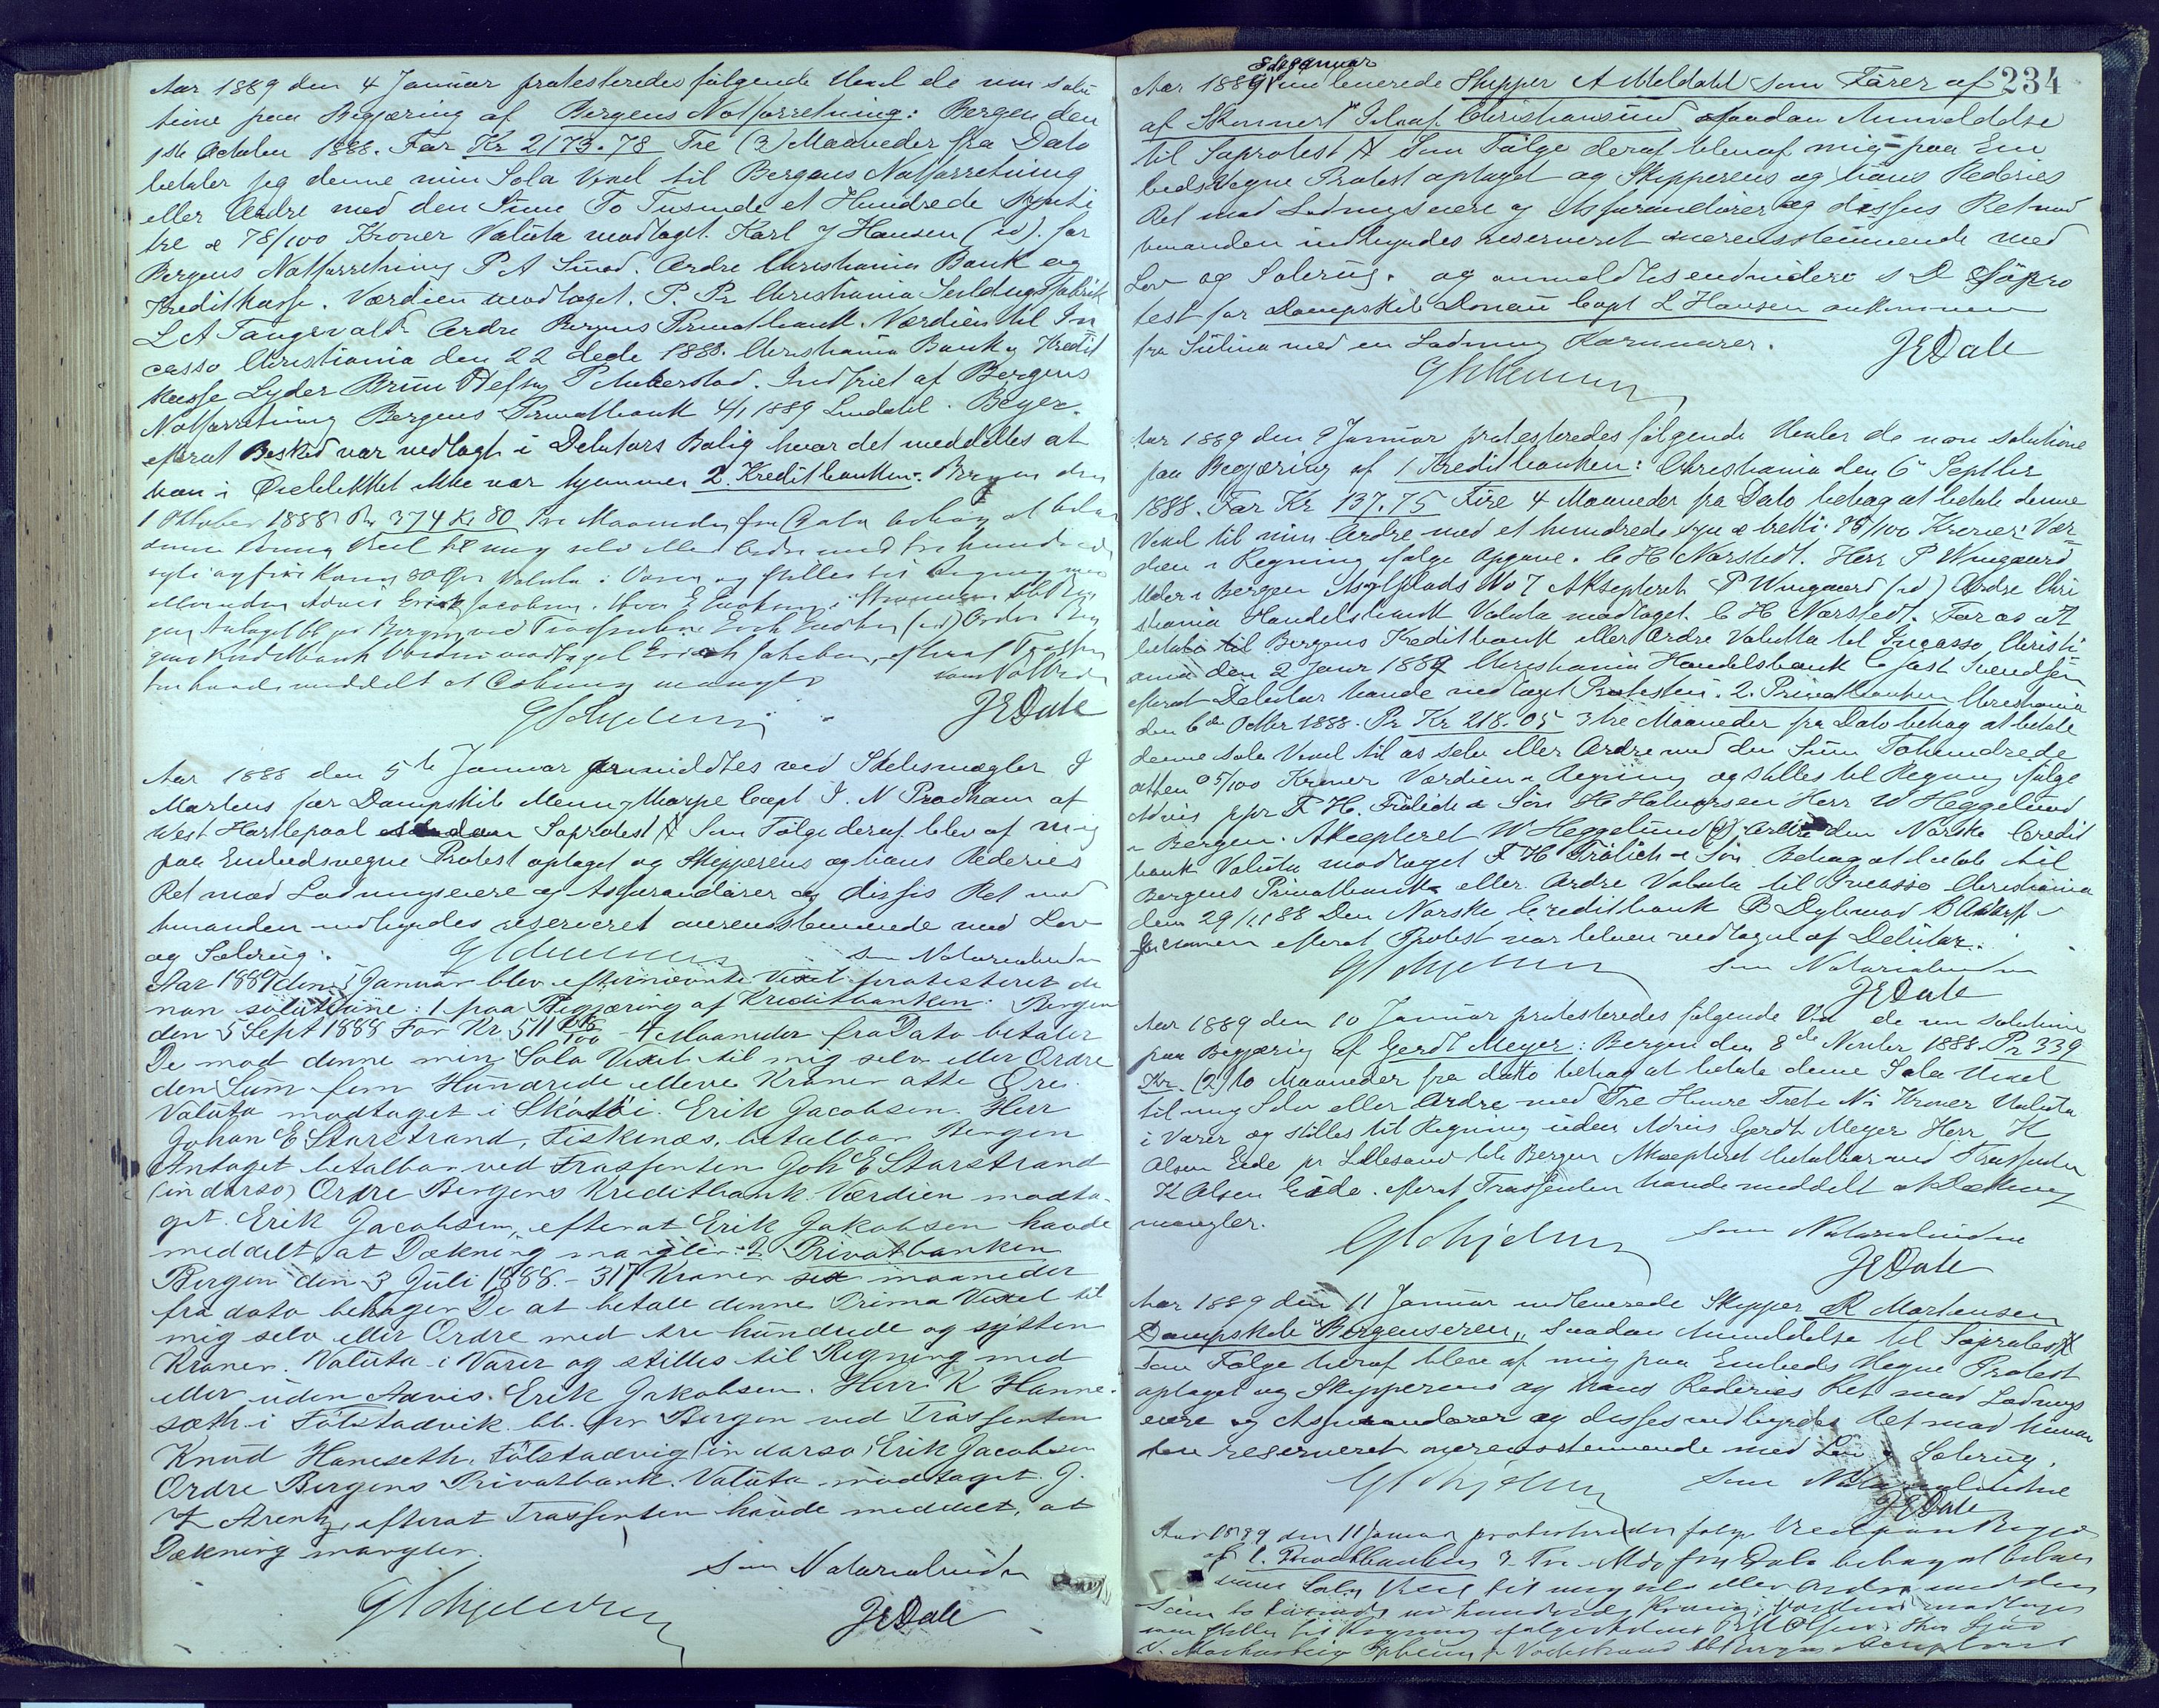 Aar 1889 den 4 Januar protesteredes følgende Vexel de non solu
tione paa Begjæring af Bergens Notforretning: Bergen den
1ste October 1888. For Kr 2173.78 Tre (3) Maaneder fra Dato
betaler jeg denne min Sola Vexel til Bergens Notforretning
eller Ordre med den Sum To Tusinde et Hundrede Sytti
tre & 78/100 Kroner Valuta modtaget. Karl J Hansen (id). for
Bergens Notforretning P A Smod. Ordre Christiania Bank og
Kreditkasse. Værdien modtaget. P. Pr Christiania Seildugsfabrik
L A Tangevald Ordre Bergens Privatbank. Værdien til In
casso Christiania den 22 Dcbr 1888. Christiania Bank & Kredit
kasse Lyder Brun P Indfriet af Bergens
Notforretning Bergens Privatbank 4/1 1889 Lindahl. Beyer.
efterat Besked var nedlagt i Debitors Bolig hvor det meddeltes at
han i Øieblikket ikke var hjemme. 2. Kreditbanken: Bergen den
1 Oktober 1888 Pr 374 Kr 80 Tre Maaneder fra Dato behag at betale
denne Vexel til mig selv eller Ordre med tre hundrede
sytti og fire Kroner 80 Øre Valuta i Varer og stilles til Regning med
eller uden Advis Erik Jacobsen. Herr E
Antaget bb pr Bergen ved Trassenten (id) Ordre Ber
gens Kreditbank Værdien modtaget Erich Jakobsen, efterat Trassen
ten havde meddelt at Dækning mangler
som Not
JEDale
Aar 1888 den 5te Januar anmeldtes ved Skibsmægler J
Martens for Dampskib Capt J. N Pradham af
West Hartlepool saadan Søprotest Som Følge deraf blev af mig
paa Embedsvegne Protest optaget og Skipperens og hans Rederies
Ret mod Ladningseiere og Assurandører og disses Ret mod
hinanden indbyrdes reserveret overensstemmende med Lov
og Søbrug.
som Notarialvidne
Aar 1889 den 5 Januar blev efternævnte Vexel protesteret de
non solutione: 1 paa Begjæring af Kreditbanken: Bergen
den 5 Sept 1888 For Kr 511 08/100 - 4 Maaneder fra Dato betaler
De mod denne min Sola Vexel til mig selv eller Ordre
den Sum fem Hundrede elleve Kroner otte Øre.
Valuta modtaget i Skøtøi. Erik Jacobsen. Herr
Johan E Starstrand, Fiskenæs, betalbar Bergen
Antaget betalbar ved Trassenten Joh E Starstrand
(in dorso) Ordre Bergens Kreditbank. Værdien modta-
get. Erik Jacobsen, efterat Erik Jakobsen havde
meddelt, at Dækning mangler. 2 Privatbanken
Bergen den 3 Juli 1888. - 317 Kroner sex maaneder
fra dato behager De at betale denne Prima Vexel til
mig selv eller Ordre med tre hundrede og sytten
Kroner. Valuta i Varer og stilles til Regning med
eller uden Advis. Erik Jakobsen. Herr K Hanne-
sæth i Følstadvik. bb. pr Bergen ved Trassenten
Knud Haneseth, Følstadvig (in dorso) Erik Jacobsen
Ordre Bergens Privatbank. Valuta modtaget. J.
Arentz, efterat Trassenten havde meddelt, at
Dækning mangler.
Som Notarialvidne
JEDale
234
8de Januar
Aar 1889 indleverede Skipper A Meldahl som Fører af
af Skonnert Christiansund saadan Anmeldelse
til Søprotest Som Følge deraf blev af mig paa Em
bedsVegne Protest optaget og Skipperens og hans Rederies
Ret mod Ladningseiere og Assurandører og disses Ret mod
hinanden indbyrdes reserveret overensstemmende med
Lov og Søbrug. og anmeldtes endvidere s D Søpro
test for Dampskib Donau Capt L Hansen ankommen
fra Sulina med en Ladning Kornvarer.
JEDale
Aar 1889 den 9 Januar protesteredes følgende Vexler de non solutione
paa Begjæring af 1 Kreditbanken: Christiania den 6 Septbr
1888. For Kr 137.75 Fire 4 Maaneder fra Dato behag at betale denne
Vexel til min Ordre med et hundrede syv & tretti 75/100 Kroner Vær-
dien i Regning ifølge Opgave. C H Norstedt. Herr P Wingaard
Maler i Bergen Asylplads No 7 Aksepteret P Wingaard (id) Ordre Chri
stiania Handelsbank Valuta modtaget. C H Norstedt. For os at
betale til Bergens Kreditbank eller Ordre Valutta til Incasso Christi
ania den 2 Janr 1889 Christiania Handelsbank C Fast Svendsen
efterat Debitor havde vedtaget Protesten. 2. Privatbanken Christiania
den 6te Octbr 1888. Pr Kr 218.05 3 tre Maaneder fra Dato behag at betale
denne Sola Vexel til os selv eller Ordre med den Sum Tohundrede
atten 05/100 Kroner Værdien i Regning og stilles til Regning ifølge
Advis ppr F. H. Frølich & Søn H Halvorsen Herr W Heggelund
i Bergen. Aksepteret W Heggelund (id). Ordre den Norske Credit
bank Valuta modtaget F H Frölich & Søn. Behag at betale til
Bergens Privatbank eller Ordre Valuta til Incasso Christiania
den 29/11 88 Den Norske Creditbank B Dybwad
efterat Protest var bleven vedtaget af Debitor.
som Notarialvidne
JEDale
Aar 1889 den 10 Januar protesteredes følgende Vex de non solutione
paa Begjæring af Gerdt Meyer: Bergen den 8de Novbr 1888. Pr 339
Kr. (2) to Maaneder fra dato behag at betale denne Sola Vexel
til mig Selv eller Ordre med Tre Hundre Treti Ni Kroner Valuta
i Varer og stilles til Regning uden Advis Gerdt Meyer Herr K
Olsen Eide pr Lillesand bb Bergen Aksepteret betalbar ved Trassenten
K Olsen Eide. efterat Trassenten havde meddelt at Dækning
mangler.
som Notarialvidne
JEDale
Aar 1889 den 11 Januar indleverede Skipper R Martensen
Dampskib "Bergenseren" saadan Anmeldelse til Søprotest
Som Følge heraf blev af mig paa Embeds Vegne Protest
optaget og Skipperens og hans Rederies Ret mod Ladnings
eiere og Assurandører og disses indbyrdes Ret mod hinan
den reserveret overensstemmende med Lov & Søbrug.
Som Notarialvidne
JEDale
Aar 1889 den 11 Januar protesteredes følge Vexel paa Begjæ
af 1. Privatbanken 3 Tre Mdr fra Dato behag at betale
denne Sola Vexel til mig selv eller Ordre med den
Sum to tusinde hundrede Kroner modtaget
stilles til Regning ifølge